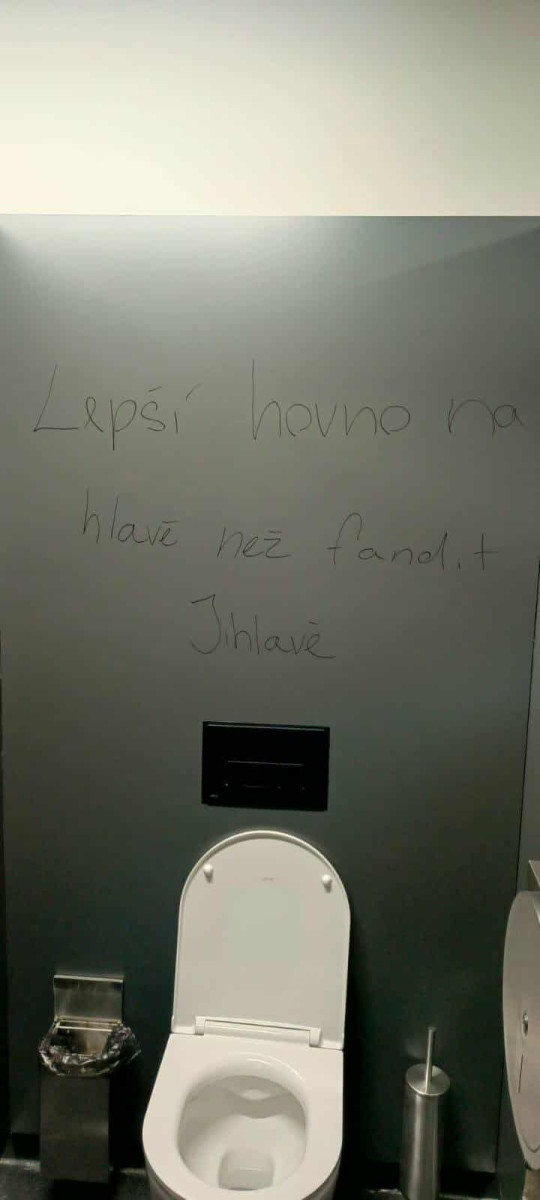 Lepší hovno na
hlavě než fandit
Jihlavě